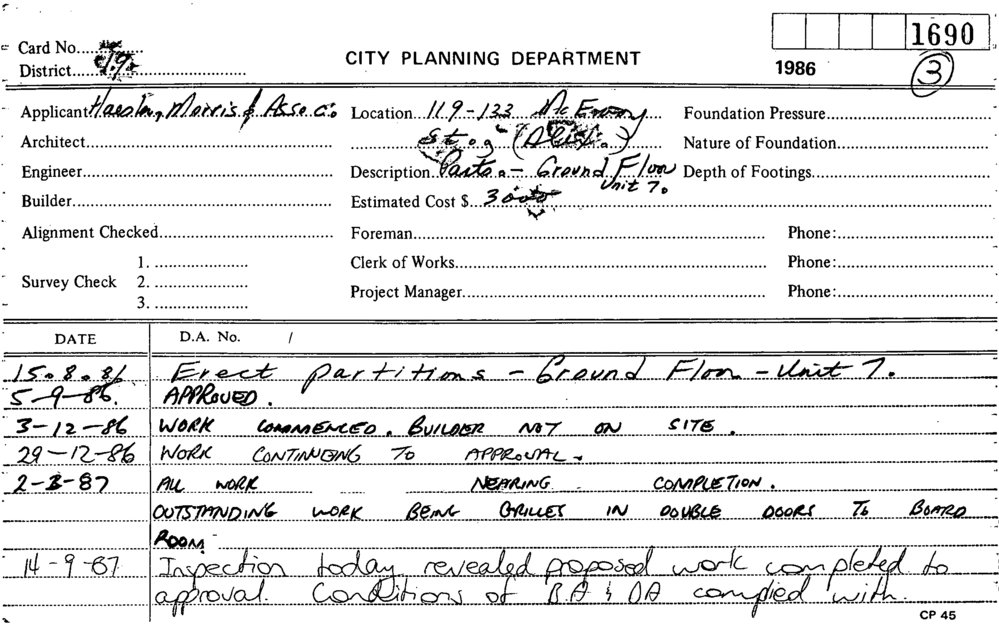 1690
Card No.
CITY PLANNING DEPARTMENT
District 19.
1986
3
Applicant Morris & Assoc. Location 119-133 McEvoy Foundation Pressure
Architect St. (Alex.) Nature of Foundation
Engineer Description Parts. - Ground Floor Depth of Footings
Unit 7.
Builder Estimated Cost $ 3000
Alignment Checked Foreman Phone:
1. Clerk of Works Phone:
Survey Check 2.
3. Project Manager Phone:
DATE D.A. No. /
15.8.86 Erect partitions - Ground Floor - Unit 7.
5-9-86. APPROVED.
3-12-86 WORK COMMENCED. BUILDER NOT ON SITE.
29-12-86 WORK CONTINUEING TO APPROVAL.
2-3-87 ALL WORK NEARING COMPLETION.
OUTSTANDING WORK BEING GRILLES IN DOUBLE DOORS TO BOARD
ROOM.
14-9-87 Inspection today revealed proposed work completed to
approval. Conditions of B.A & DA complied with.
CP 45